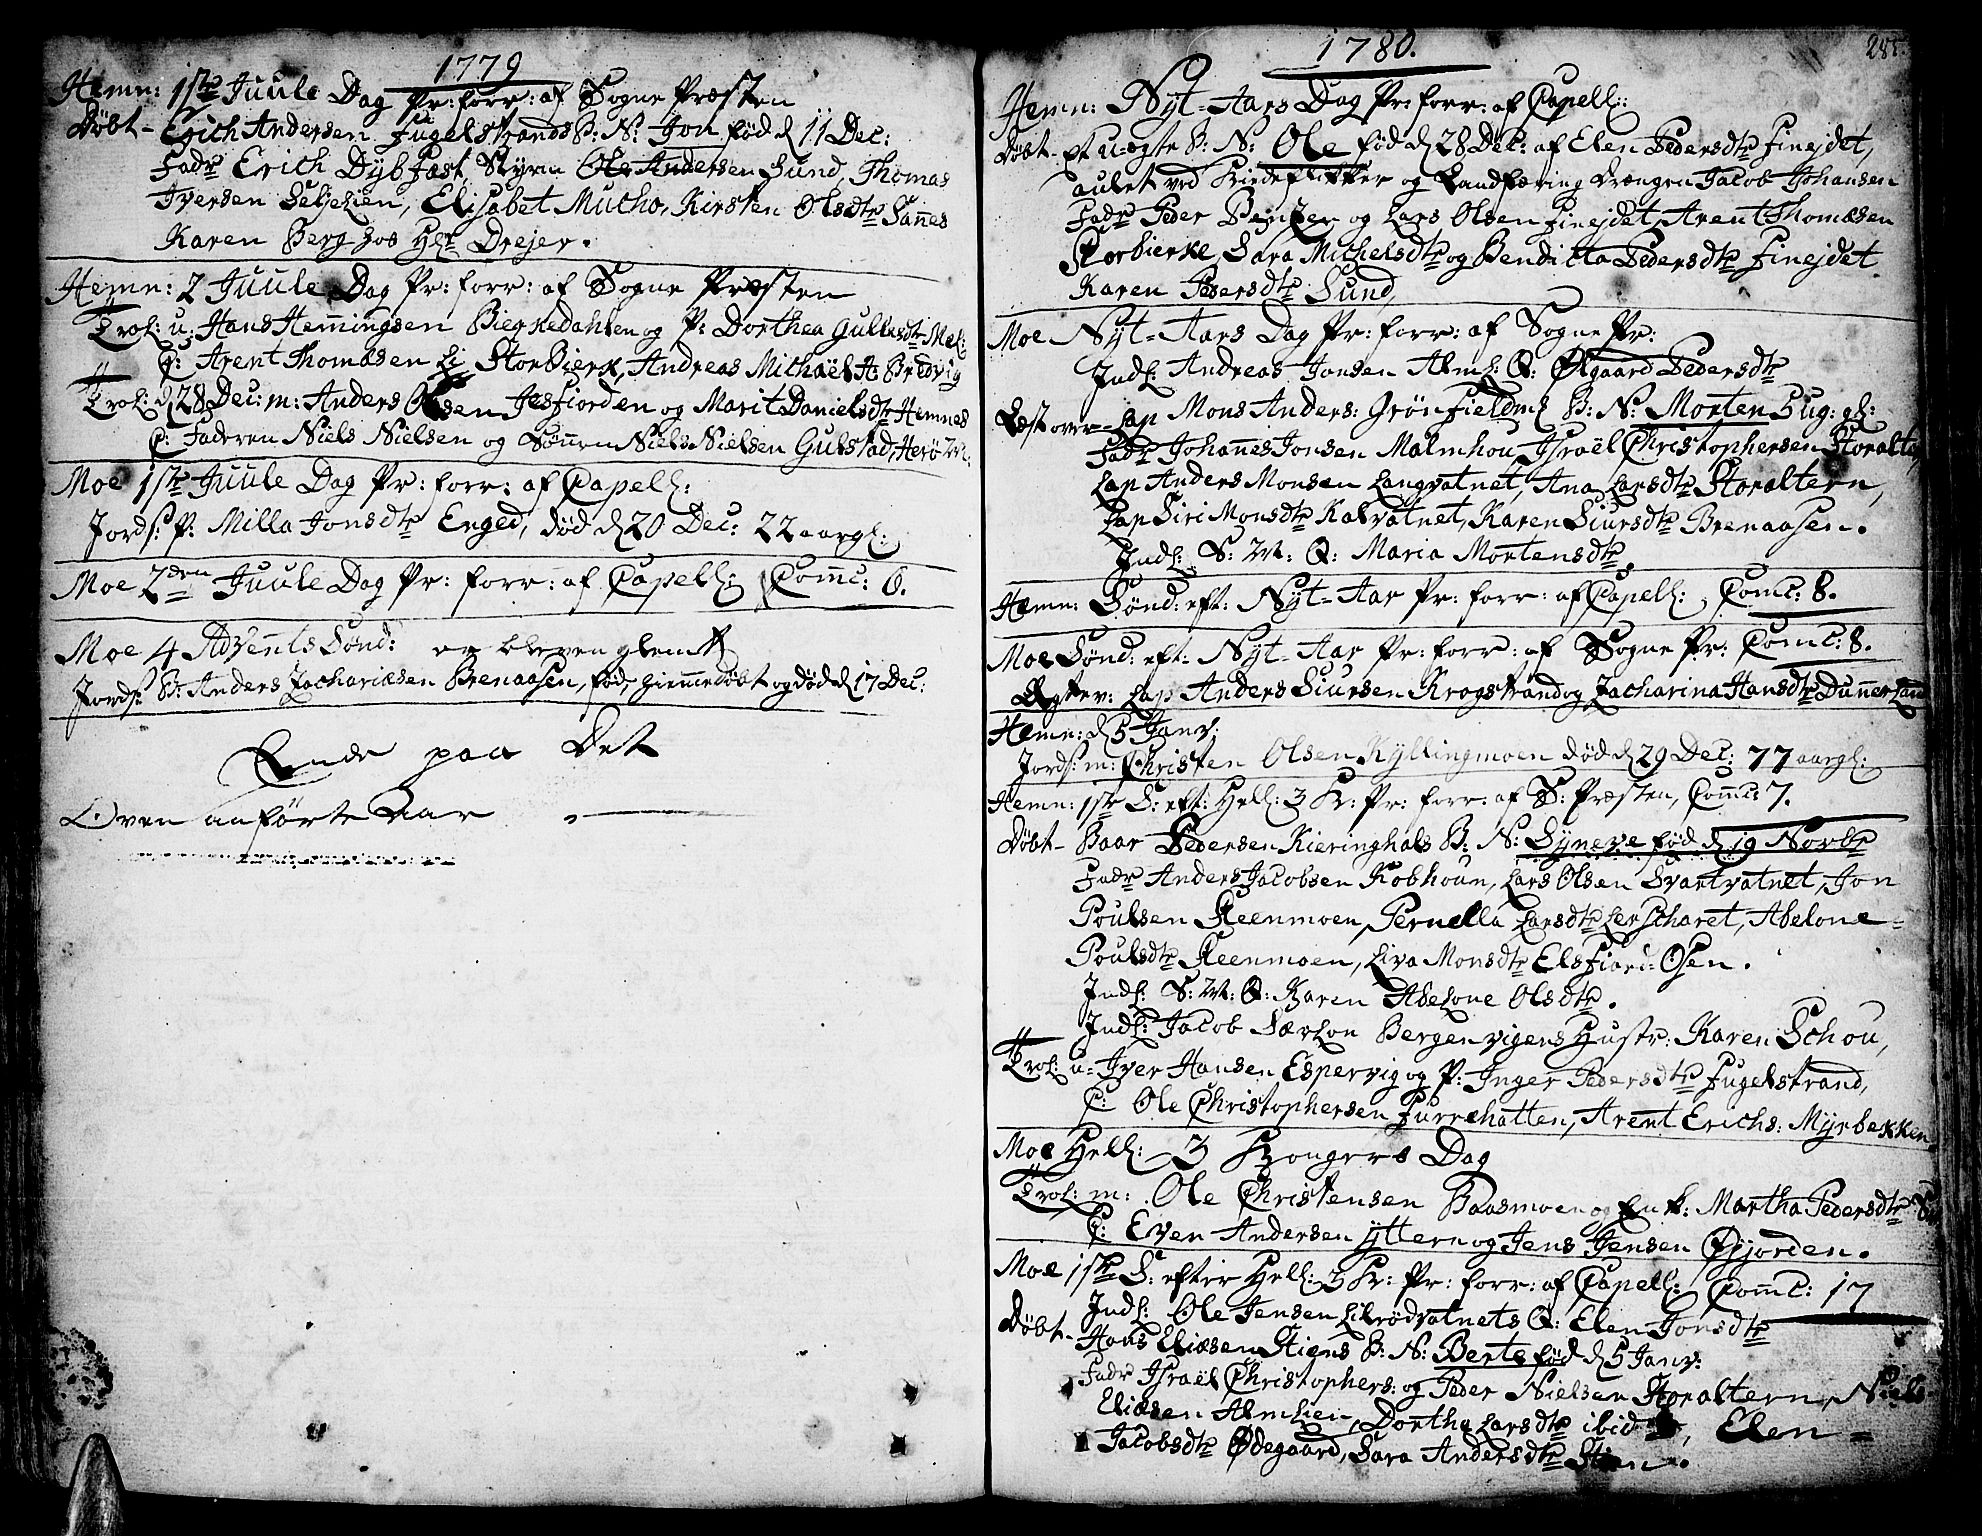 1779
Hemn: 1ste Juule Dag Pr: forr: af Sogne Præsten
Døbt - Erich Andersen Fugelstrands B: N: Jon fød d 11 Dec:
Fadr Erich Dybfæst, Styrm Ole Andersen Sund, Thomas
Iversen Seljelien, Elisabet Mucho, Kirsten Olsdtr Sañes
Karen Berg hos Hr Drejer.
Hemn: 2 Juule Dag Pr: forr: af Sogne Præsten
Trol: u: Hans Hemingsen Bierkedahlen og P: Dorthea Gullesdtr Mel:
C: Arent Thomæsen Li StorBierk, Andreas Michaël A: Bredvig
Trol: d 28 Dec: m: Anders Olsen Jesfiorden og Marit Danielsdtr Hemnes
C: Faderen Niels Nielsen og Søñen Niels Nielsen Gulstad, Herö M:
Moe 1ste Juule Dag Pr: forr: af Capell:
Jords: P: Milla Jonsdtr Enged, død d 20 Dec: 22 aar gl:
Moe 2den Juule Dag Pr: forr: af Capell: Com̃c: 6.
Moe 4 Advents Sønd: er bleven glemt
Jords: B: Anders Zachariæsen Brenaasen, fød, hiemmedøbt og død d 17 Dec:
Ende paa Det
Oven anførte Aar
1780.
285.
Hemn: Nyt-Aars Dag Pr: forr: af Capell:
Døbt - et uægte B: N: Ole fød d 28 Dec: af Elen Pedersdtr Finejdet,
avlet ved Kiedeflikker og Landfæring Drængen Jacob Johansen
Fadr Peder Bentzen og Lars Olsen Finejdet, Arent Thomæsen
Storbierke, Sara Michelsdtr og Benditta Pedersdtr Finejdet.
Karen Pedersdtr Sund,
Moe Nyt-Aars Dag Pr: forr: af Sogne Pr:
Indl: Andreas Jonsen Almli Q: Ølgaard Pedersdtr
Læst over - Lap Mons Anders: Grönfieldmd B: N: Morten 5 ug: gl:
Fadr Johañes Jonsen Malmhou, Jsraël Christophersen Storalte
Lap Anders Monsen Langvatnet, Ana Larsdtr Storaltern,
Lap Siri Monsdtr Kalvatnet, Karen Siursdtr Brenaasen.
Indl: S: M: Q: Maria Mortensdtr.
Hemn: Sønd: eft: Nyt-Aar Pr: forr: af Capell: Com̃c: 8.
Moe Sønd: eft: Nyt-Aar Pr: forr: af Sogne Pr: Com̃c: 8.
Ægtev: Lap Anders Siursen Krogstrand og Zacharina Hansdtr Duñerland
Hemn: d 5 Janv:
Jords: m: Christen Olsen Kyllingmoen død d 29 Dec: 77 aar gl:
Hemn: 1ste S: eft: Hell: 3 K: Pr: forr: af S: Præsten, Com̃c: 7.
Døbt - Baar Pedersen Kieringhals B: N: Syneve fød d 19 Novbr
Fadr Anders Jacobsen Kobhoun, Lars Olsen Svartvatnet, Jon
Poulsen Steenmoen, Pernella Larsdtr Lerscharet, Abelone
Poulsdtr Steenmoen, Liva Monsdtr Elsfiord: Osen.
Indl: S: M: Q: Karen Abelone Olsdtr.
Indl: Jacob Særlon Bergenvigens Hustr: Karen Schou,
Trol: u - Iver Hansen Espervig og P: Inger Pedersdtr Fugelstrand,
C: Ole Christophersen Furrehatten, Arent Erichs: Myrbekken
Moe Hell: 3 Kongers Dag
Trol: m: Ole Christensen Baasmoen og Enk: Martha Pedersdtr
C: Even Andersen yttern og Jens Jensen Øyjorden.
Moe 1ste S: efter Hell: 3 K: Pr: forr: af Capell: Com̃c: 17
Indl: Ole Jensen Lilrødvatnets Q: Elen Jonsdtr
Døbt - Hans Eliæsen Stiens B: N: Berte fød d 5 Janv:
Fadr Jsraël Christophers: og Peder Nielsen Storaltern, Niels
Eliæsen Almlien, Dorthe Larsdtr ibid, Elen
Jacobsdtr Ødegaard, Sara Andersdtr Stien.